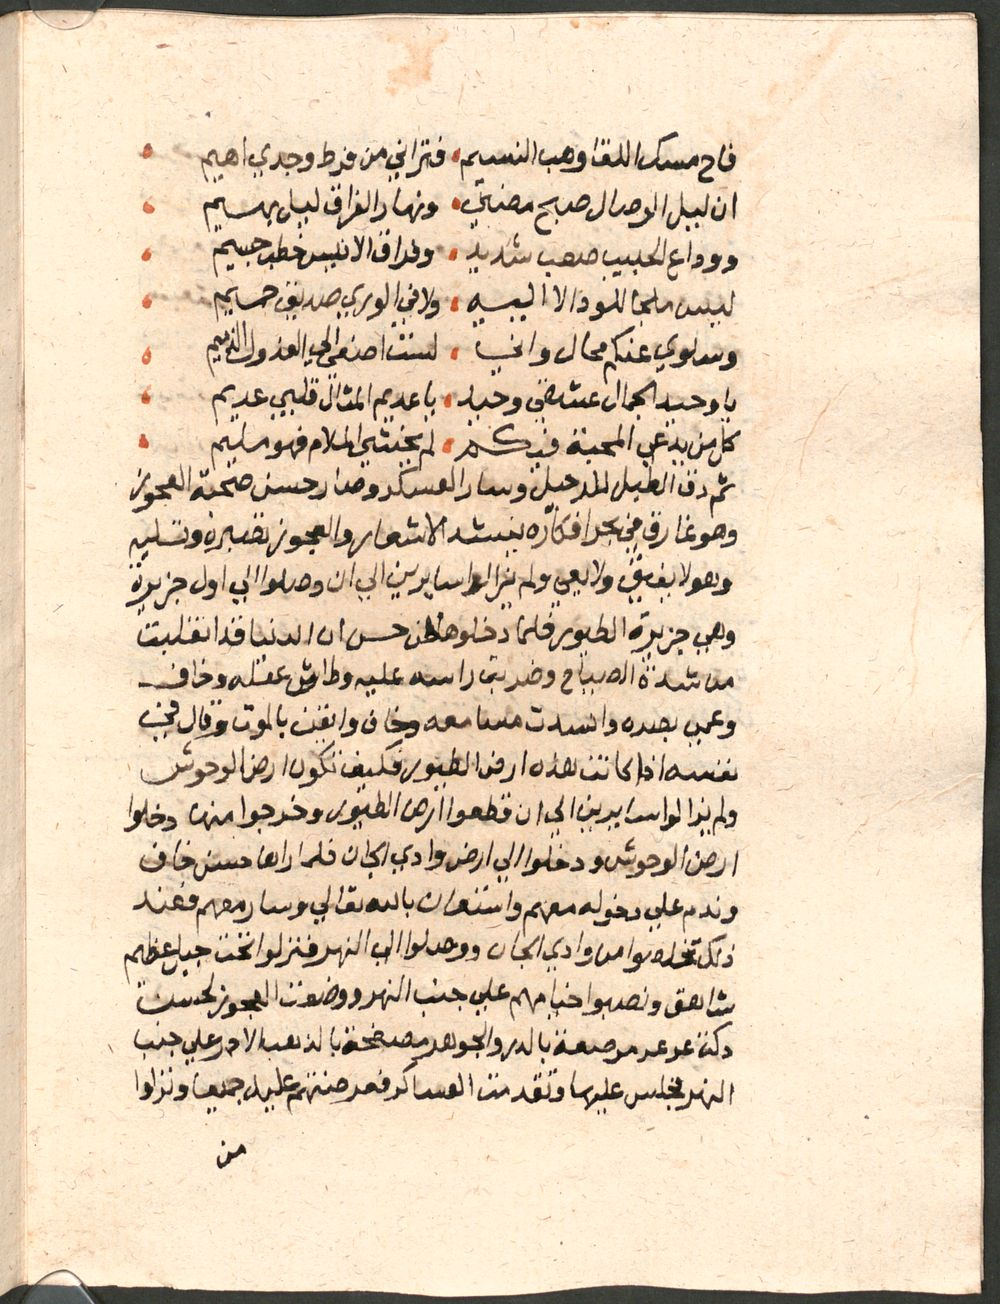 فاح مسك اللقا وهب النسيم • فتراني من فرط وجدي اهيم •
ان ليل الوصال صبح مضئ • ونهار الفراق ليل بهيم •
ووداع الحبيب صعب شديد • وفراق الانيس خطب جسيم •
ليس ملجا للود الا اليه • ولا في الوري صديق حميم •
وسلوي عنكم محال واني • لست اصغي الي العذول الذميم •
يا وحيد الجمال عشقي وحيد • يا عديم المثال قلبي عديم •
كل من يدعي المحبة فيكم • لم يخشي الملام فهو مليم •
ثم دق الطبل للرحيل وسار العسكر وصار حسن صحبة العجوز
وهو غارق في بحر افكاره ينشد الاشعار والعجوز تصبره وتسليه
وهو لا يفيق ولا يعي ولم يزالوا سايرين الي ان وصلوا الي اول جزيرة
وهي جزيرة الطيور فلما دخلوها ظن حسن ان الدنيا قد انقلبت
من شدة الصياح وضربت راسه عليه وطاش عقله وخاف
وعمي بصره وانسدت مسامعه وخاف وايقن بالموت وقال في
نفسه اذا كانت هذه ارض الطيور فكيف تكون ارض الوحوش
ولم يزالوا سايرين الي ان قطعوا ارض الطيور وخرجوا منها دخلوا
ارض الوحوش ودخلوا الي ارض وادي الجان فلما راها حسن خاف
وندم علي دخوله معهم واستعان بالله تعالي وسار معهم فعند
ذلك تخلصوا من وادي الجان ووصلوا الي النهر فنزلوا تحت جبل عظيم
شاهق ونصبوا خيامهم علي جنب النهر ووضعت العجوز لحسن
دكة مرمر مرصعة بالدر والجوهر مصفحة بالذهب الاحمر علي جنب
النهر فجلس عليها وتقدمت العساكر فعرضتهم عليه جميعا ونزلوا
من